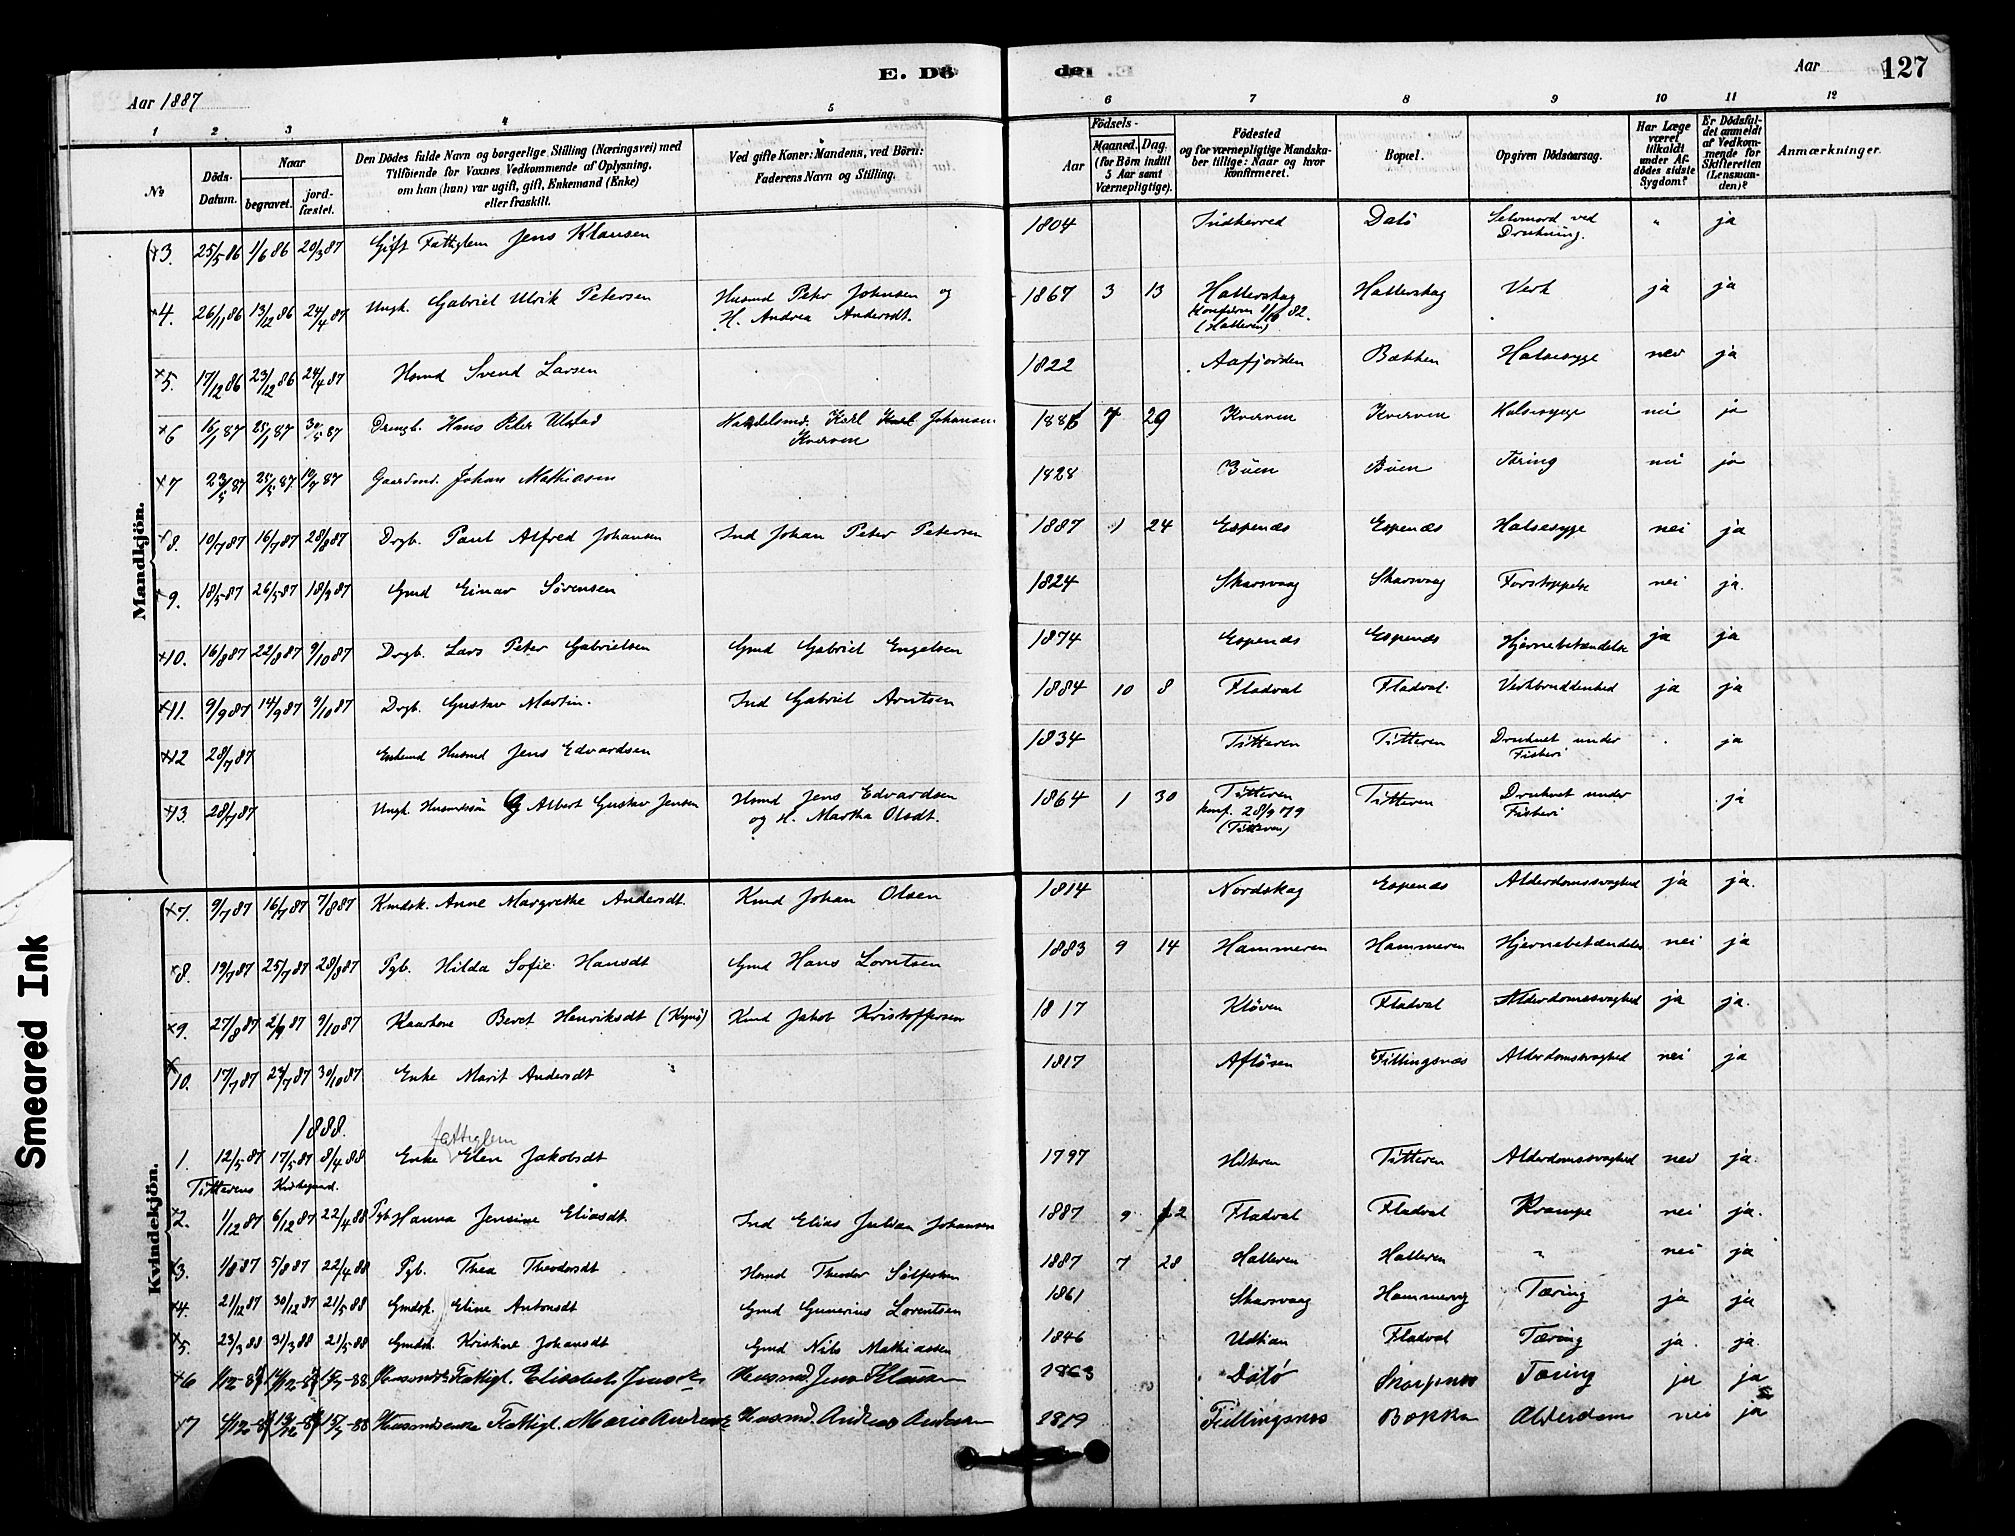 E. Dö
de.
Aar
127
Aar 1887
1 2 3 4 5 6 7 8 9 10 11 12
No
Döds-Datum.
Naar
begravet. jord-fæstet.
Den Dödes fulde Navn og borgerlige Stilling (Næringsvei) med
Tilföiende for Voxnes Vedkommende af Oplysning,
om han (hun) var ugift, gift, Enkemand (Enke)
eller fraskilt.
Ved gifte Koner: Mandens, ved Börn:
Faderens Navn og Stilling.
Födsels-
Aar
Maaned. Dag.
(for Börn indtil
5 Aar samt
Værnepligtige).
Födested
og for værnepligtige Mandska-
ber tillige: Naar og hvor
konfirmeret.
Bopæl.
Opgiven Dödsaarsag.
Har Læge
været
tilkaldt
under Af-
dödes sidste
Sygdom?
Er Dödsfal-
det anmeldt
af Vedkom-
mende for
Skifteretten
(Lensman-
den)?
Anmærkninger.
Mandkjön.
3. 25/5 86 1/6 86 20/3 87 Gift Fattiglem Jens Klausen 1804 Datö Selvmord ved Drukning. " ja
4. 26/11 86 13/12 86 24/4 87 Ungk. Gabriel Ulrik Petersen Husmd Peter Johnsen og H. Andrea Andersdt. 1867 3 13 Hatterskag (Hatteren) Hatterskag Verk ja ja
5. 17/12 86 23/12 86 24/4 87 Hsmd Svend Larsen 1822 Aafjorden Bækken Halsesyge nei ja
6 16/1 87 25/1 87 30/5 87 Drengb. Hans Peter Ulstad Handelsmd. Karl Johansen Kverven 7 29 Kverven Kverven Halsesyge nei ja
7 23/5 87 25/5 87 Gaardmd. Johan Mathiasen 1828 Buen Buen Tæring nei ja
8. 10/7 87 16/7 87 28/8 87 Drgb. Paul Alfred Johansen Ind Johan Peter Petersen 1887 1 24 Espenæs Espenæs Halsesyge nei ja
9. 18/5 87 26/5 87 Gmd Einar Sörensen 1824 Skarsvaag Skarsvaag Forstoppelse nei ja.
10. 16/8 87 22/8 87 9/10 87 Drgb. Lars Peter Gabrielsen Gmd Gabriel Engelsen 1874 Espenæs Espenæs Hjernebetændelse ja ja
11. 9/9 87 14/9 87 9/10 87 Drgb. Gustav Martin. Ind Gabriel Arntsen 1884 10 8 Fladval Fladval. Verkbruddenhed ja ja
12 28/7 87 Enkemd Husmd Jens Edvardsen 1834 Titteren Titteren Druknet under Fiskeri ja
13. 28/7 87 Ungk. Husmandssön Albert Gustav Jensen Hsmd Jens Edvardsen og H. Martha Olsdt. 1864 1 30 Titteren konf. 28/9 79 (Titteren) Titteren Druknet under Fiskeri ja
Kvindekjön.
7. 9/7 87 16/7 87 7/8 87 Kmdsk. Anne Margrethe Andersdt. Kmd Johan Olsen 1814 Nordskag Espenæs Alderdomssvaghed ja ja.
8. 19/7 87 25/7 87 28/8 87 Pgb. Hilda Sofie Hansdt Gmd Hans Lorntsen 1883 9 14 Hammeren Hammeren Hjernebetændelse nei ja
9. 27/8 87 2/9 87 9/10 87 Kaarkone Beret Henriksdt Kmd Jakob Kristoffersen 1817 Klöven Fladval Alderdomssvaghed ja ja.
10. 17/7 87 24/7 87 30/10 87 Enke Marit Andersdt 1817 Aflösen Fillingsnæs Alderdomssvaghed nei ja
1888.
Fattiglem
1. 12/5 87 17/5 87 8/4 88 Enke Elen Jakobsdt 1797 Hitteren Titteren Alderdomssvaghed nei ja.
Titterens Kirkegaard.
2. 1/12 87 6/12 87 22/4 88 Pgb Hanna Jensine Eliasdt Ind Elias Julian Johansen 1887 9 Fladval Fladval Krampe nei ja.
3. 1/8 87 5/8 87 22/4 88 Pgb. Thea Theodorsdt Hsmd Theodor 1887 7 28 Hatteren Hatteren " nei ja
4. 21/12 87 30/12 87 21/5 88 Gmdsk. Eline Antonsdt Gmd Gunerius Lorentsen 1861 Skarsvaag Tæring ja ja
5. 23/3 88 31/3 88 21/5 88 Gmdsk. Kristine Johansdt Gmd Nils Mathiassen 1846 Udtian Fladval Tæring ja. ja.
6 Fattigl. Elisabeth Husmd. Jens Klausen 1863 Datö Tæring ja ja
7 Husmdsenke Fattigl. Marie Husmd. Andreas 1819 Fillingsnæs Alderdom nei ja
Smeared Ink